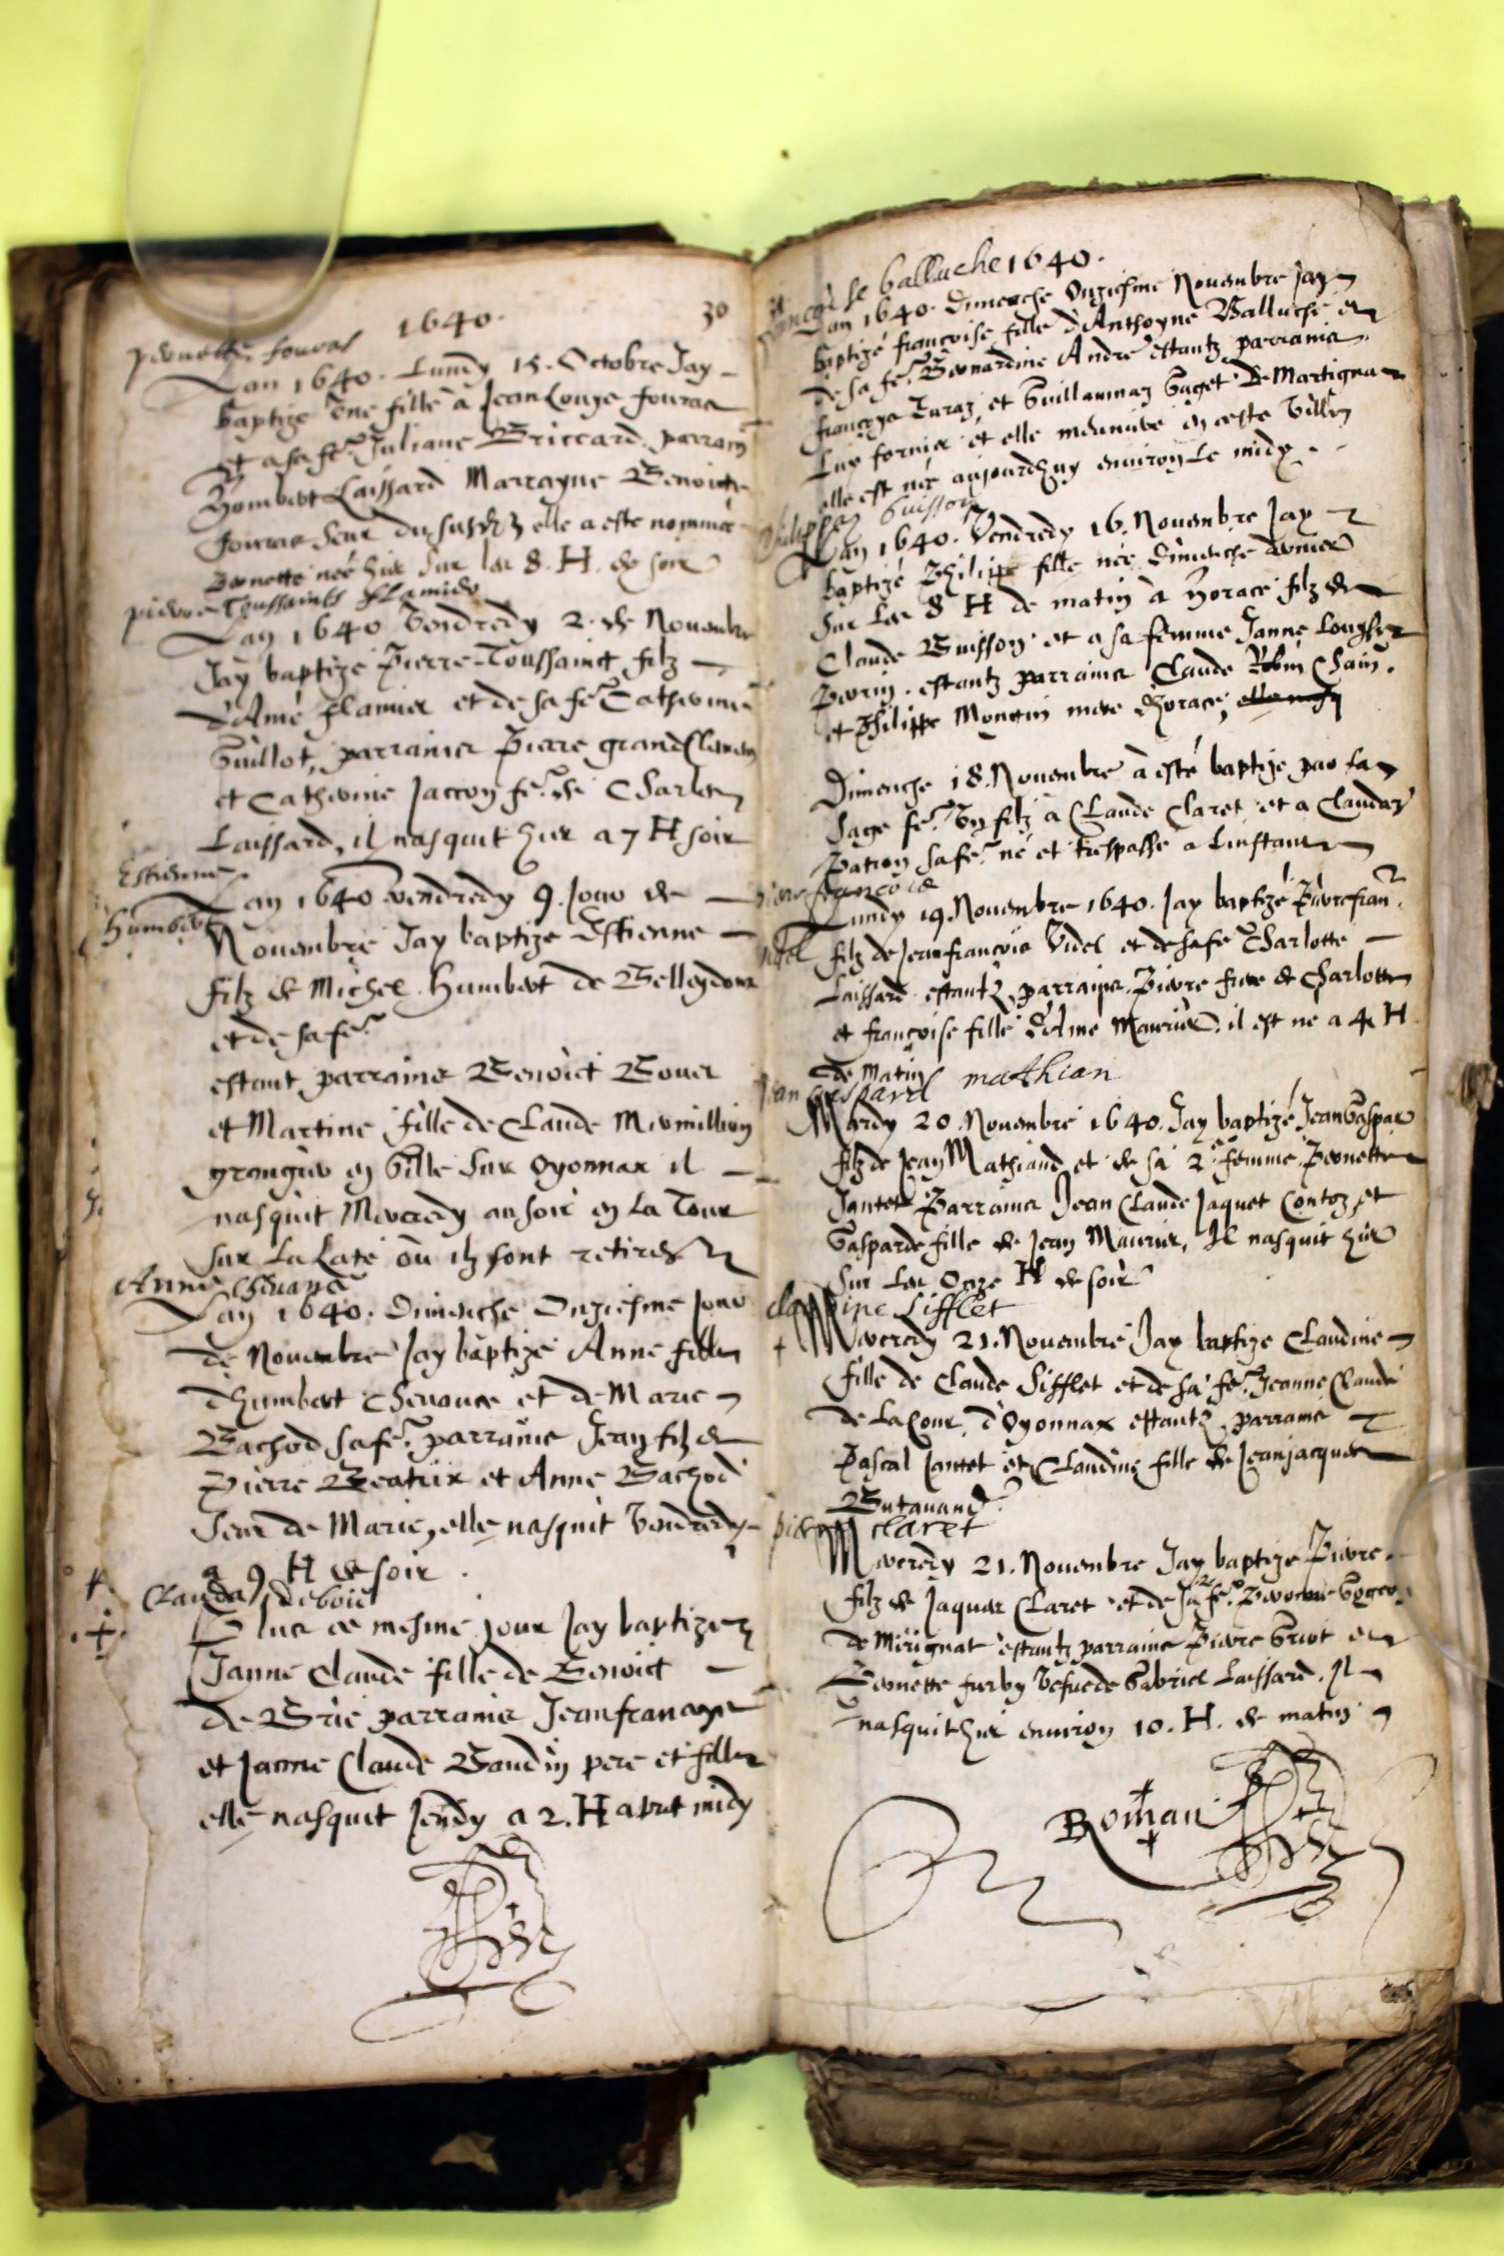 1640.
30
pernette fouras
Lan 1640. Lundy 15. Octobre Jay
baptize une fille a Jean Louys fouras
et a sa fe. Juliane Briccard. parrain
Humbert Laissard Marrayne Benoite
fouras seur du susd elle a este nommee
Pernette née hier sur les 8. H. de soir
pierre Toussainct flamier
Lan 1640 Vendredy 2. de Novembre
Jay baptize Pierre-Toussainct filz
d'Amé flamier et de sa fe Catherine
Guillot, parrains Pierre grandClement
et Catherine Jacson fe. de Charles
Laissard, il nasquit hier a 7 H soir
Estienne
humbert
Lan 1640 vendredy 9. Jour de
Novembre Jay baptize Estienne
filz de Michel Humbert de Bellegdoux
et de sa fe
estant parrains Benoict Bouer
et Martine fille de Claude Mermillion
grangier en Ville sur Oyonnax il
nasquit Mercredy au soir en la Tour
sur La Late ou ilz sont retires
Anne Chevance
Lan 1640. Dimenche Onziesme Jour
de Novembre Jay baptize Anne fille
dhumbert Chevance et de Marie
Bachod sa fe. parrains Jean filz de
Pierre Beatrix et Anne Bachod
Seur de Marie, elle nasquit Vendredy
a 9 H de soir.
Clauda debrie
Plus ce mesme jour Jay baptize
Janne Claude fille de Benoict
de Brie parrains Jeanfrancoys
et Janne Claude Gaudin pere et fille
elle nasquit Jeudy a 2. H apres midy
francoise balluche 1640.
Lan 1640. Dimenche Onziesme Novembre Jay
baptizé francoise fille d'Anthoyne Balluche et
de sa fe. Bernardine André estantz parrains
francoys Turaz, et Guillaumaz Guget de Martigna
Luy fornier et elle meuniere en ceste Ville
elle est née aujourdhuy environ le midy.
Philippe buisson
Lan 1640. Vendredy 16. Novembre Jay
baptizé Philippe fille née Dimenche dernier
sur les 8 H de matin à Horace filz de
Claude Buisson et a sa femme Janne
Perrin. estantz parrains Claude Robin Chain.
et Philippe Montin mere dhorace,
Dimenche 18. Novembre à esté baptize par la
Sage fe. un filz à Claude Claret et a Clauda
Patron sa fe. né et trespasse a linstant
pierre francois
videl
Lundy 19 Novembre 1640. Jay baptizé Pierrefran.
filz de Jeanfrancois Videl et de sa fe Charlotte
Laissard estantz parrains Pierre frere de Charlotte
et francoise fille d'Ame Maurier. il est ne a 4 H
de matin
Jean gaspard mathian
Mardy 20. Novembre 1640. Jay baptizé JeanGaspar
filz de Jean Mathiand et de sa 2e femme Pernette
Jantet Parrains Jean Claude Jaquet Contoz, et
Gasparde fille de Jean Maurier, Il nasquit hier
sur les Onze H de soir
claudine Sifflet
+ Mercredy 21. Novembre Jay baptize Claudine
fille de Claude Sifflet et de sa fe. Jeanne Claude
de Lacour, d'Oyonnax estantz parrains
Pascal Jantet et Claudine fille de Jeanjacques
Butavand
pierre claret
Mercredy 21. Novembre Jay baptize Pierre
filz de Jaques Claret et de sa 2e fe.
de Merignat estantz parrains Pierre Griot et
Pernette furby Vefve de Gabriel Laissard. Il
nasquit hier environ 10. H. de matin
Roman